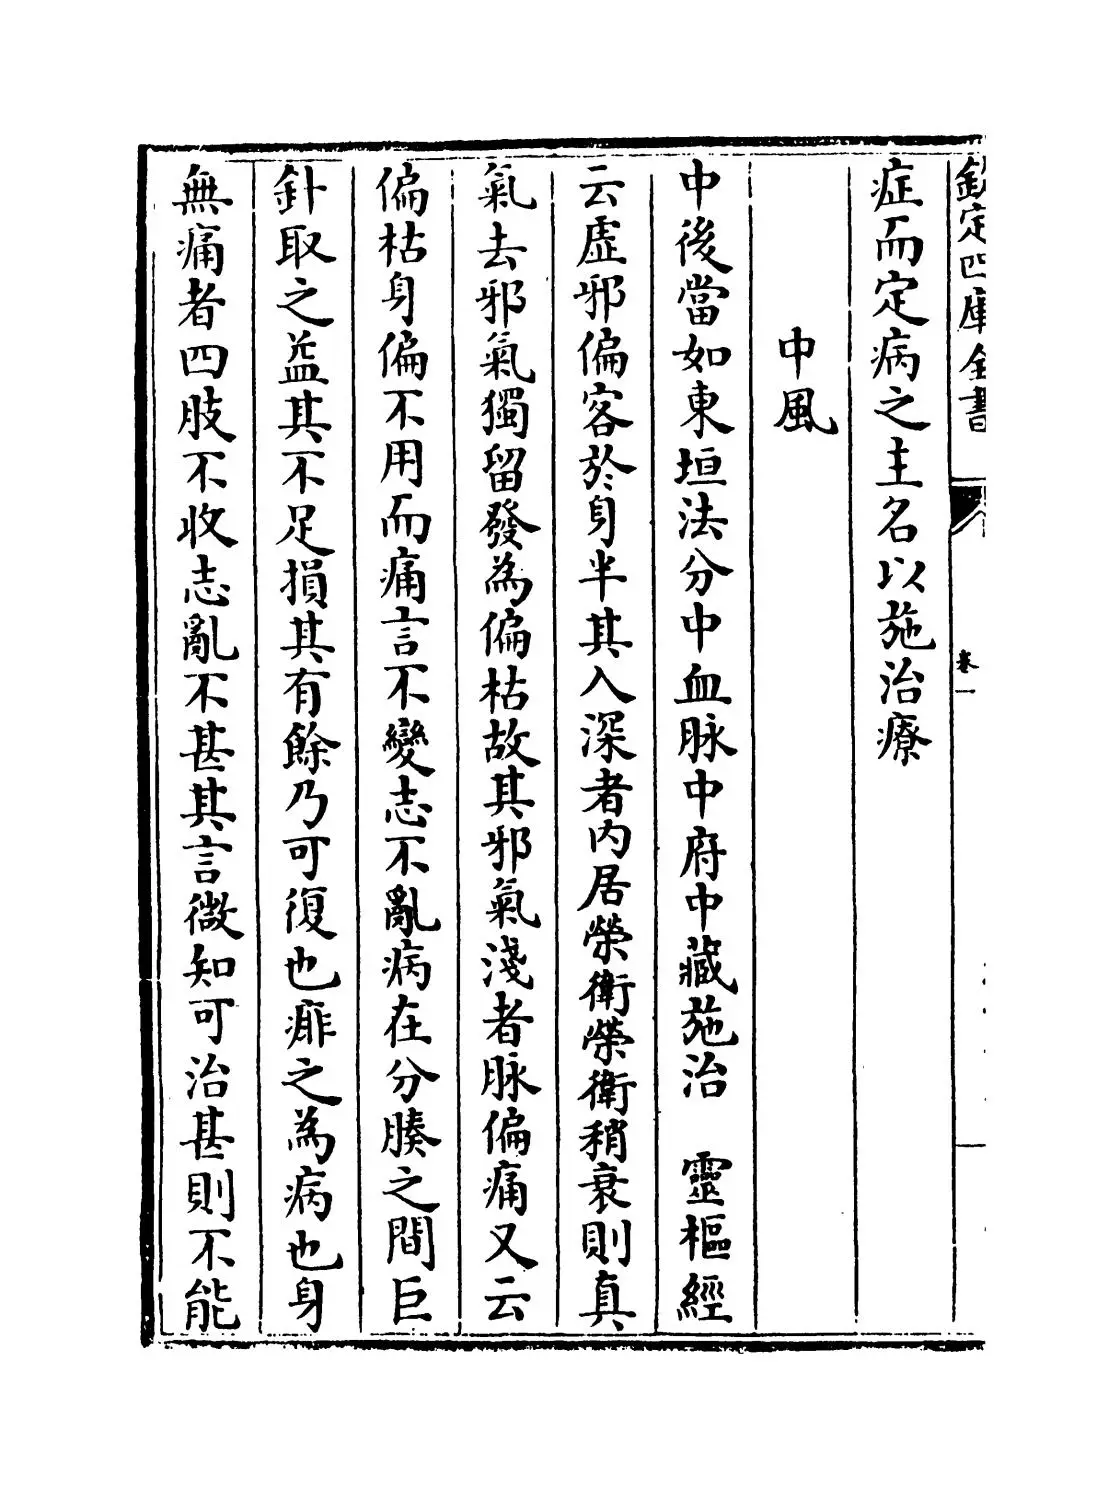 欽定四庫全書
卷一
症而定病之主名以施治療
中風
中後當如東垣法分中血脉中府中藏施治　靈樞經
云虛邪偏客於身半其入深者內居榮衛榮衛稍衰則真
氣去邪氣獨留發為偏枯故其邪氣淺者脉偏痛又云
偏枯身偏不用而痛言不變志不亂病在分腠之間巨
針取之益其不足損其有餘乃可復也痱之為病也身
無痛者四肢不收志亂不甚其言微知可治甚則不能